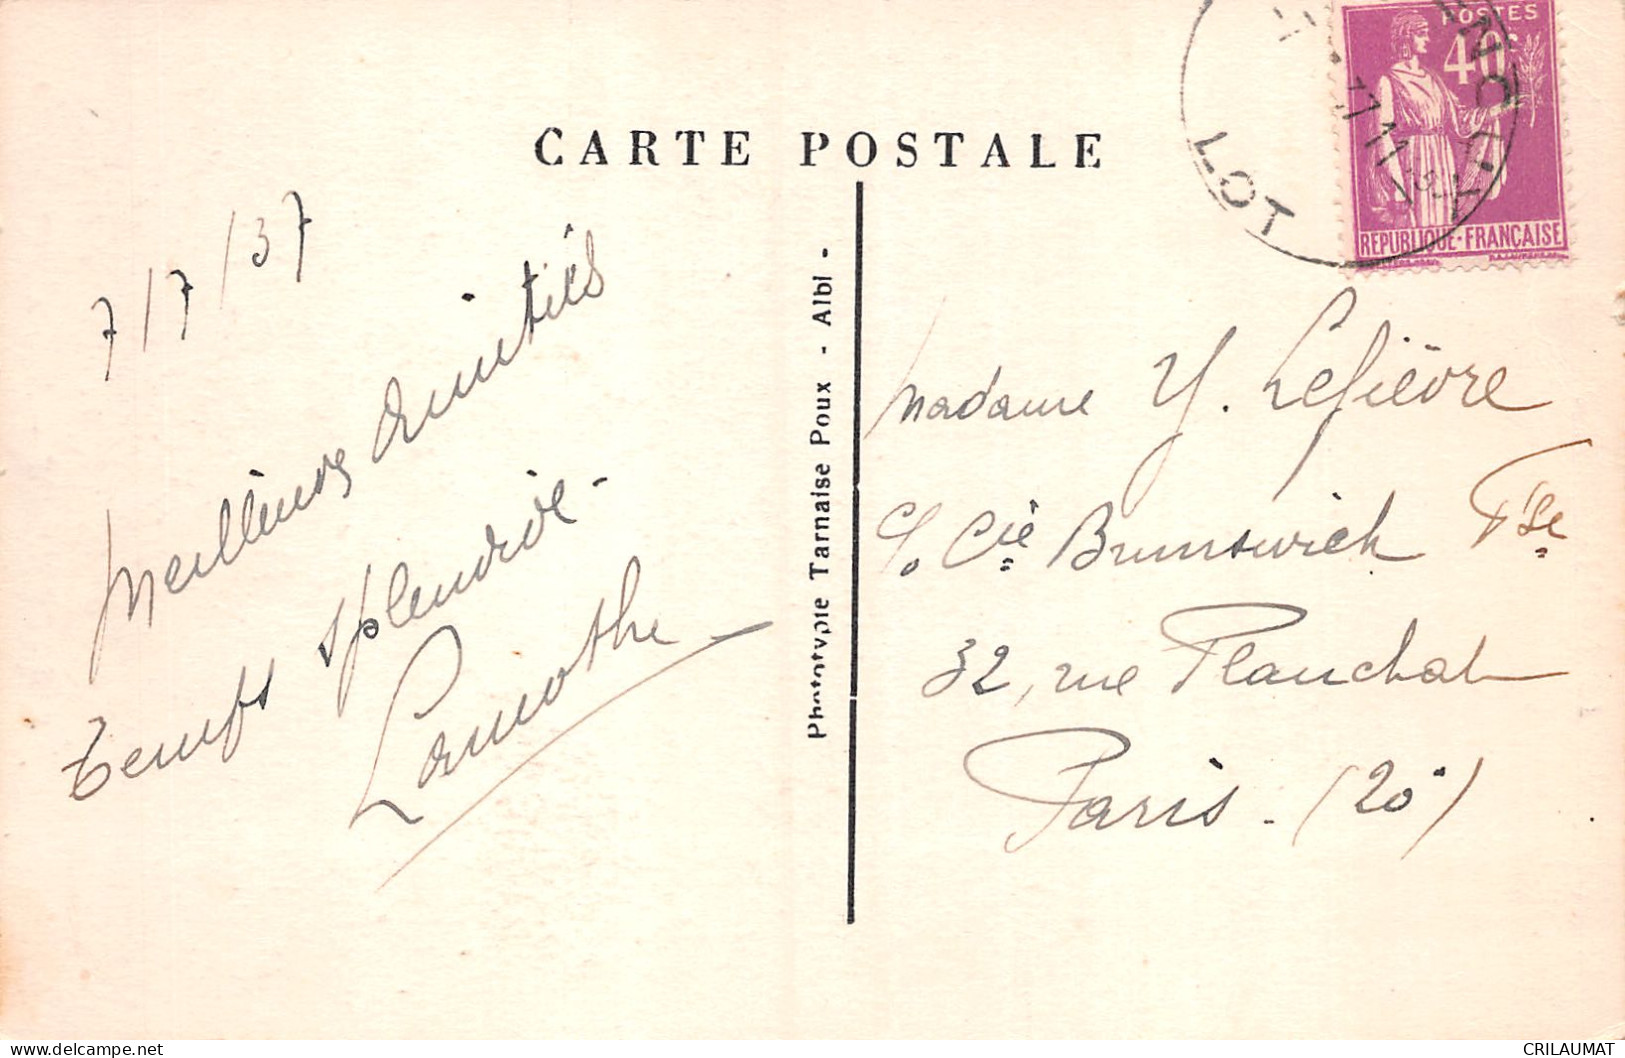 CARTE POSTALE
POSTES
40c
REPUBLIQUE·FRANÇAISE
LOT
7/7/37
Meilleures amitiés
temps splendide -
Lamothe
Phototypie Tarnaise Poux - Albi -
Madame Y. Lefièvre
c/o Cie Brunswick Fse
32, rue Planchat
Paris - (20°)
CRILAUMAT